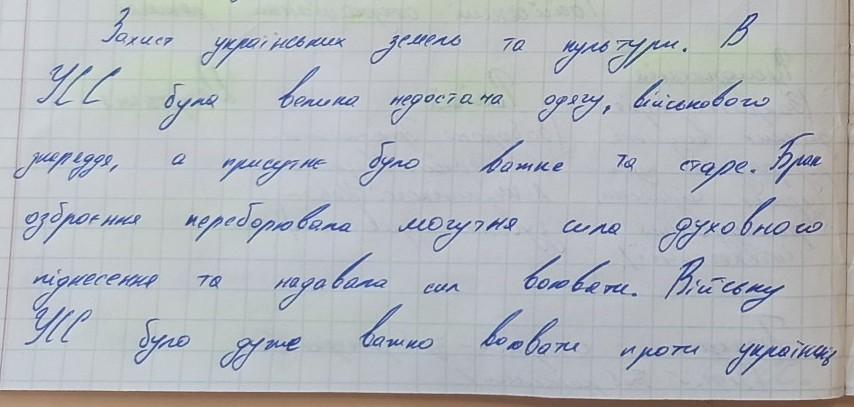 Захист українських земель та культури. В
УСС була велика недостача одягу, військового
знаряддя, а присутнє було важке та старе. Брак
озброєння переборювала могутня сила духовного
піднесення та надавала сил воювати. Війську
УСС було дуже важко воювати проти українців